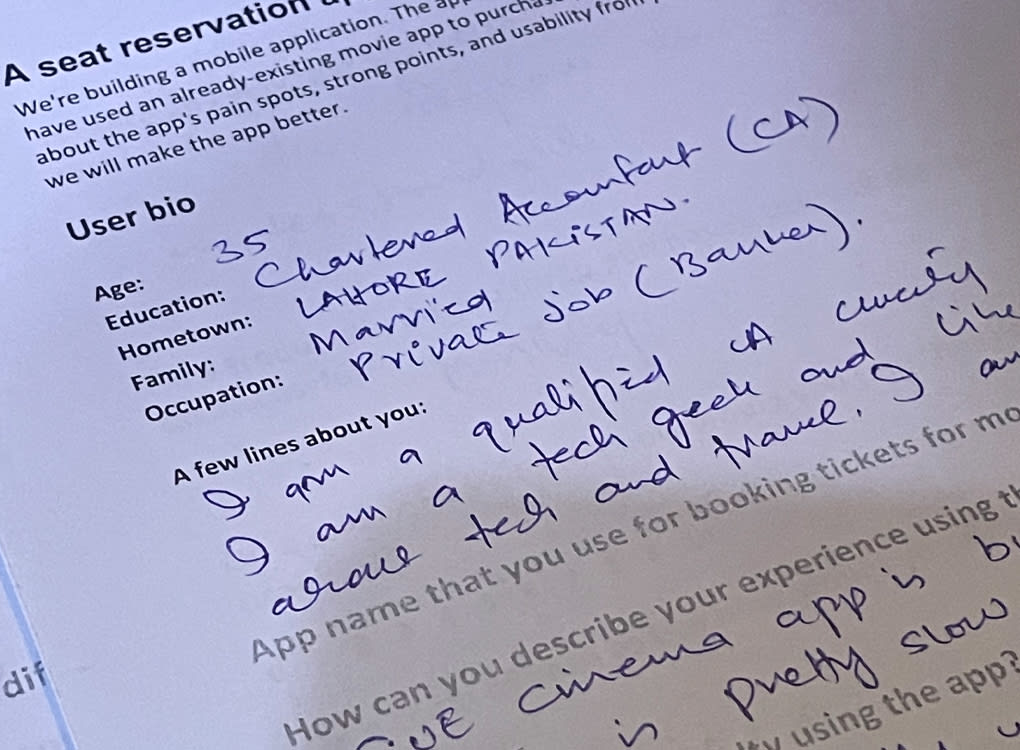 A seat reservation
We're building a mobile application. The
have used an already-existing movie app to purchas
about the app's pain spots, strong points, and usability from
we will make the app better.
User bio
Age: 35
Education: Chartered Accountant (CA)
Hometown: LAHORE PAKISTAN.
Family: Married
Occupation: Private job (Banker).
A few lines about you:
I am a qualified CA
I am a tech geek and like
tech and travel. I am
App name that you use for booking tickets for mo
How can you describe your experience using th
cinema app is
is pretty slow
ity using the app?
dif